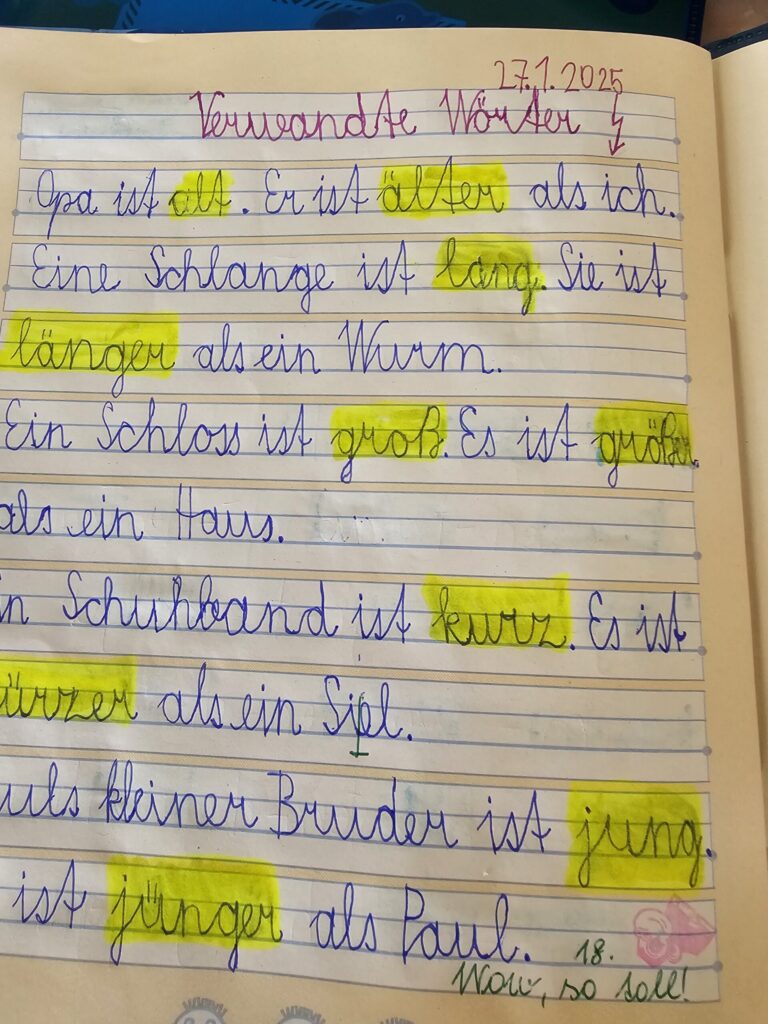 27.1.2025
Verwandte Wörter
Opa ist alt. Er ist älter als ich.
Eine Schlange ist lang. Sie ist
länger als ein Wurm.
Ein Schloss ist groß. Es ist größer
als ein Haus.
n Schuhband ist kurz. Es ist
ürzer als ein Siel.
uls kleiner Bruder ist jung.
ist jünger als Paul.
18.
Wow, so toll!